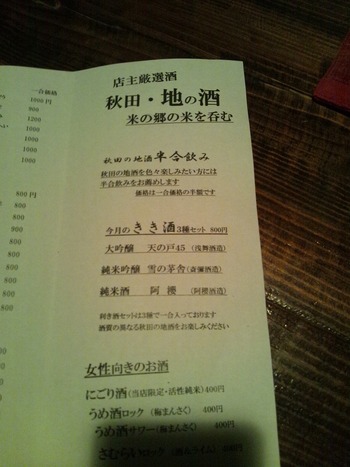 一合価格
1000 円
900
1200
1000
1000
1000
800 円
800
800
800
800
800
800
店主厳選酒
秋田・地の酒
米の郷の米を呑む
秋田の地酒半合飲み
秋田の地酒を色々楽しみたい方には
半合飲みをお薦めします
価格は一合価格の半額です
今月のきき酒3種セット 800円
大吟醸 天の戸45 (浅舞酒造)
純米吟醸 雪の茅舎 (斎彌酒造)
純米酒 阿櫻 (阿櫻酒造)
利き酒セットは3種で一合入っております
酒質の異なる秋田の地酒をお楽しみください
女性向きのお酒
にごり酒(当店限定・活性純米)400円
うめ酒ロック (梅まんさく) 400円
うめ酒サワー(梅まんさく) 400円
さむらいロック 400円